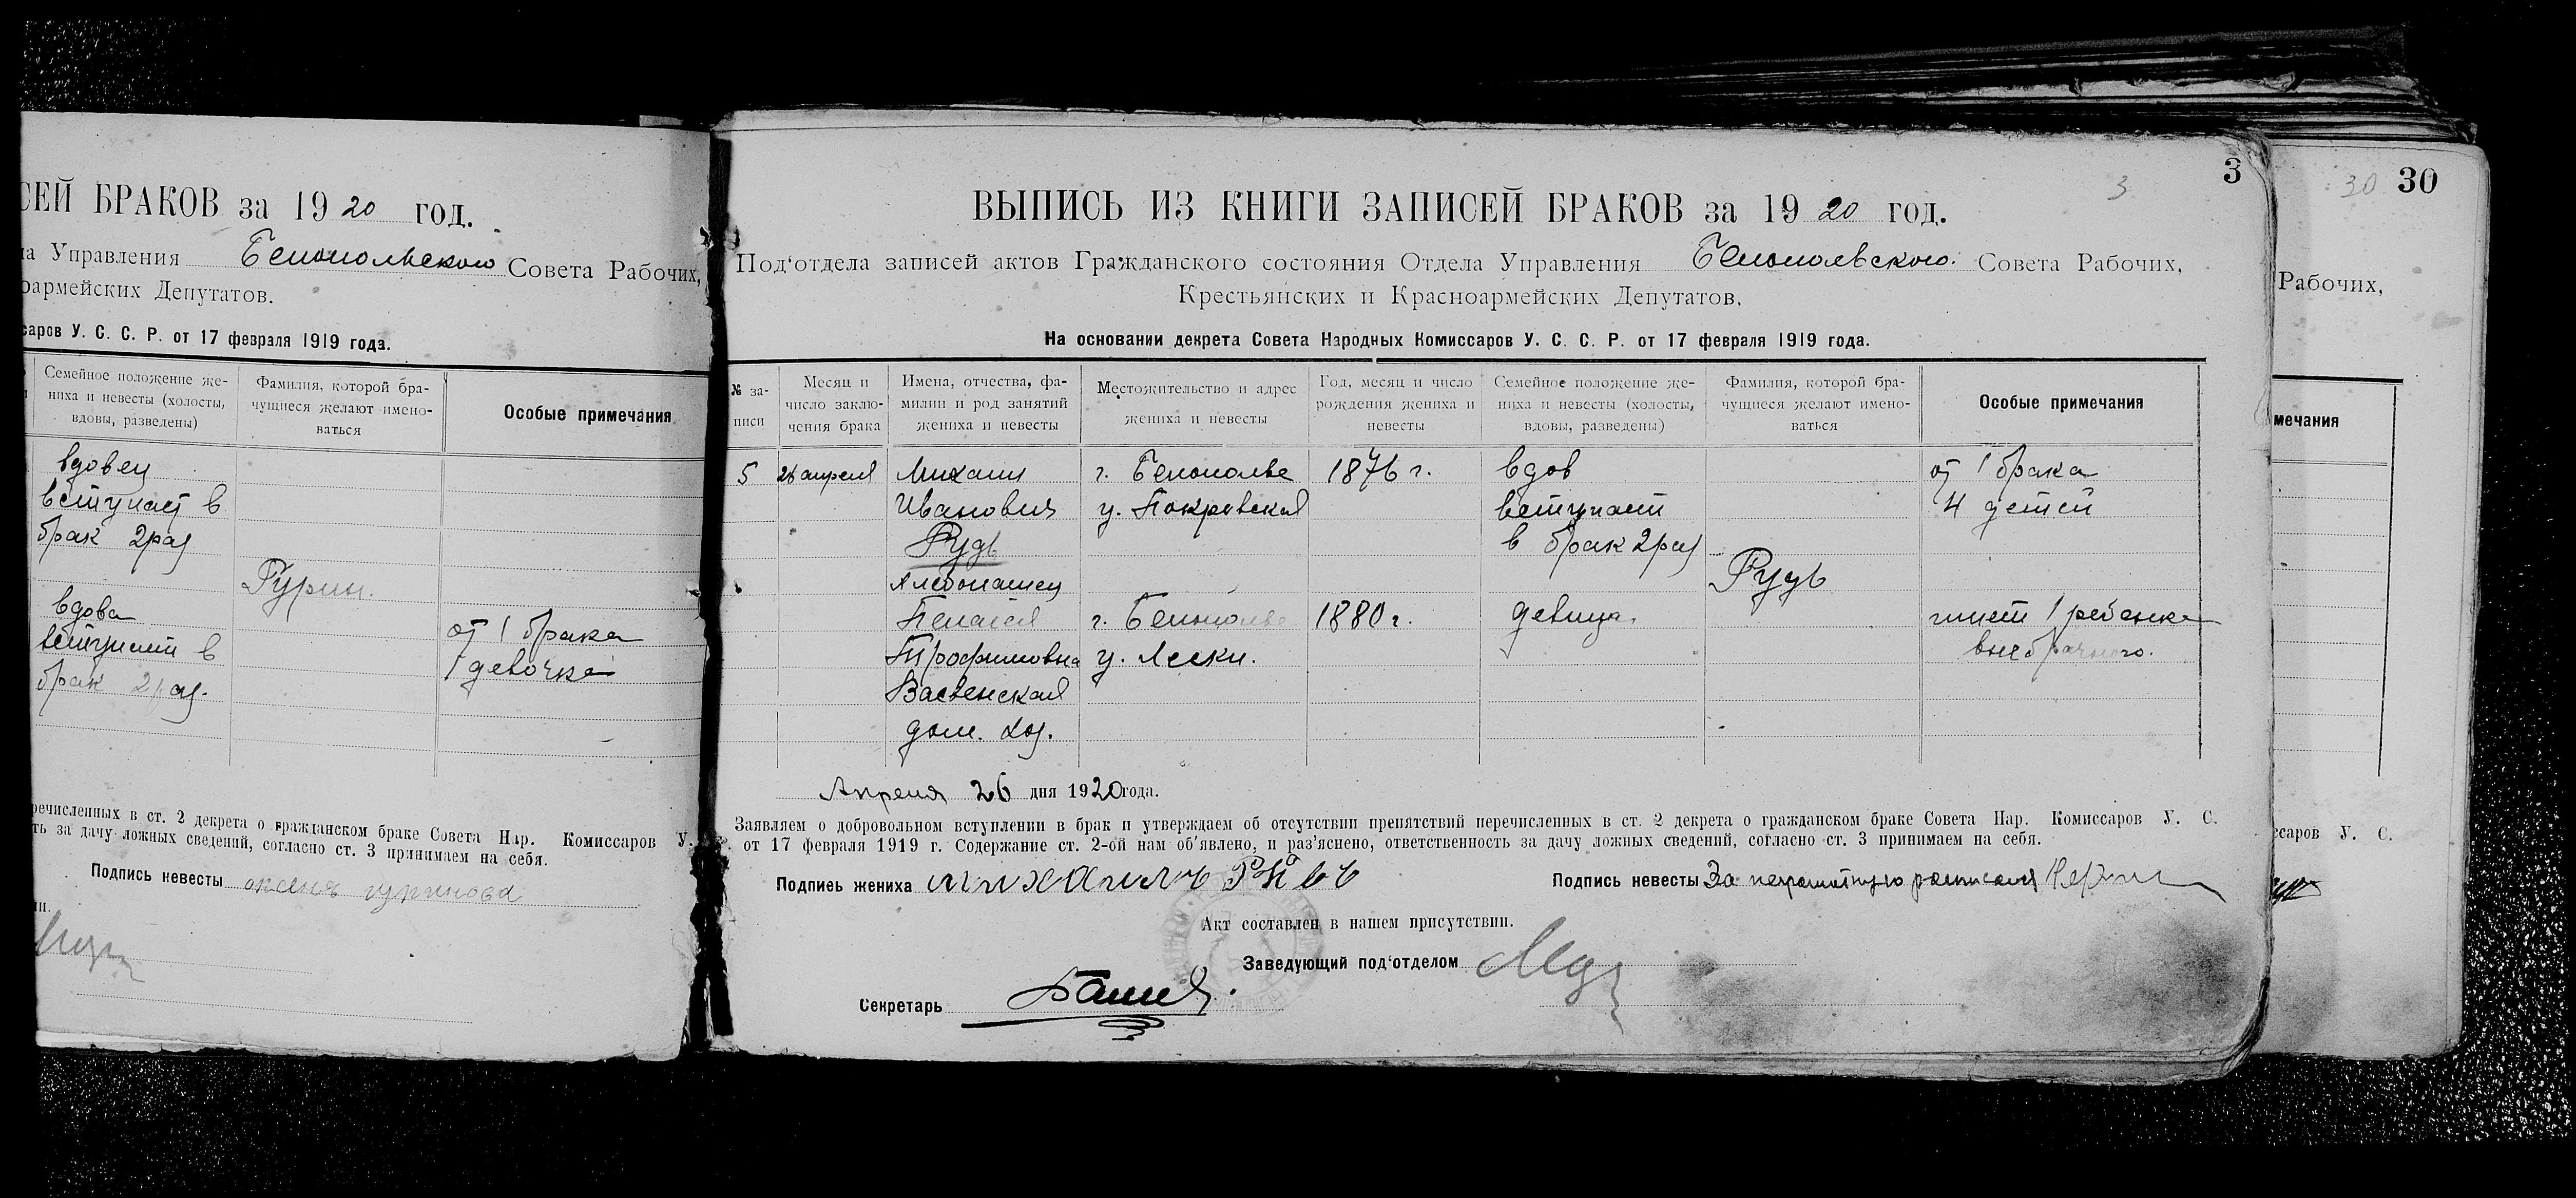 СЕЙ БРАКОВ за 1920 год.
Управления Белопольского Совета Рабочих,
оармейских Депутатов.
саров У. С. С. Р. от 17 февраля 1919 года.
Семейное положение же-
ниха и невесты (холосты,
вдовы, разведены)
Фамилия, которой бра-
чущиеся желают имено-
ваться
Особые примечания
вдовец
вступает в
брак 2 раз
Гурин.
вдова
вступает в
брак 2 раз.
от 1 брака
1 девочка
речисленных в ст. 2 декрета о гражданском браке Совета Нар. Комиссаров У.
ть за дачу ложных сведений, согласно ст. 3 принимаем на себя.
Подпись невесты оксена гуринова
3
3
ВЫПИСЬ ИЗ КНИГИ ЗАПИСЕЙ БРАКОВ за 1920 год.
Под‘отдела записей актов Гражданского состояния Отдела Управления Белопольского Совета Рабочих,
Крестьянских и Красноармейских Депутатов.
На основании декрета Совета Народных Комиссаров У. С. С. Р. от 17 февраля 1919 года.
№ за-
писи
Месяц и
число заклю-
чения брака
Имена, отчества, фа-
милии и род занятий
жениха и невесты
Местожительство и адрес
жениха и невесты
Год, месяц и число
рождения жениха и
невесты
Семейное положение же-
ниха и невесты (холосты,
вдовы, разведены)
Фамилия, которой бра-
чущиеся желают имено-
ваться
Особые примечания
5 26 апреля Михаил г. Белополье 1876 г. вдов от 1 брака
Иванович у. Покровская вступает 4 детей
Рудь в брак 2 раз
хлебопашец Рудь
Пелагея г. Белополье 1880 г. девица. имеет 1 ребенка
Трофимовна у. Лески. внебрачного.
дом. хоз.
Апреля 26 дня 1920 года.
Заявляем о добровольном вступлении в брак и утверждаем об отсутствии препятствий перечисленных в ст. 2 декрета о гражданском браке Совета Нар. Комиссаров У. С.
от 17 февраля 1919 г. Содержание ст. 2-ой нам об‘явлено, и раз‘яснено, ответственность за дачу ложных сведений, согласно ст. 3 принимаем на себя.
Подпись жениха михаилъ
Подпись невесты За неграмотную расписался
Акт составлен в нашем присутствии.
Заведующий под‘отделом
Секретарь
30 30
Рабочих,
мечания
ссаров У. С.